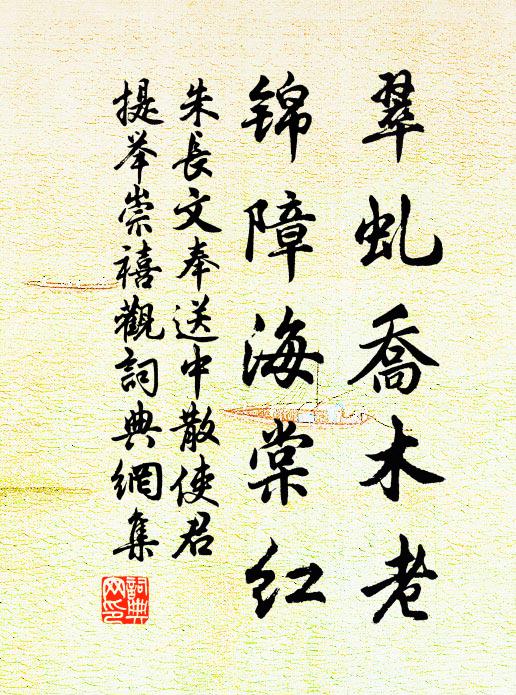 翠虬喬木老
锦障海棠红
朱長文奉送中散使君
提举崇禧觀詞典網集
詞典
网印